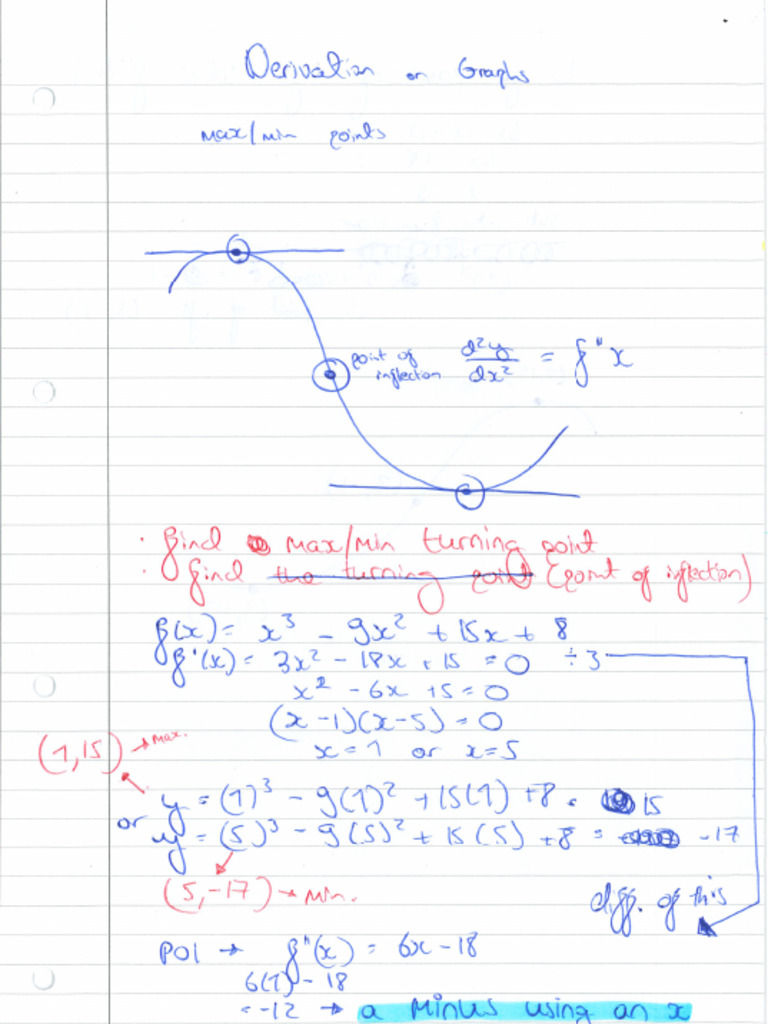 Derivation on Graphs
max/min points
point of inflection d²y/dx² = f"x
· find max/min turning point
· find the turning point (point of inflection)
f(x) = x³ - 9x² + 15x + 8
f'(x) = 3x² - 18x + 15 = 0 ÷3
x² - 6x + 5 = 0
(x - 1)(x - 5) = 0
x = 1 or x = 5
(1,15) → max.
y = (1)³ - 9(1)² + 15(1) + 8 = 15
or y = (5)³ - 9(5)² + 15(5) + 8 = -17
(5,-17) → min.
diff. of this
POI → f"(x) = 6x - 18
6(1) - 18
= -12 → a minus using an x